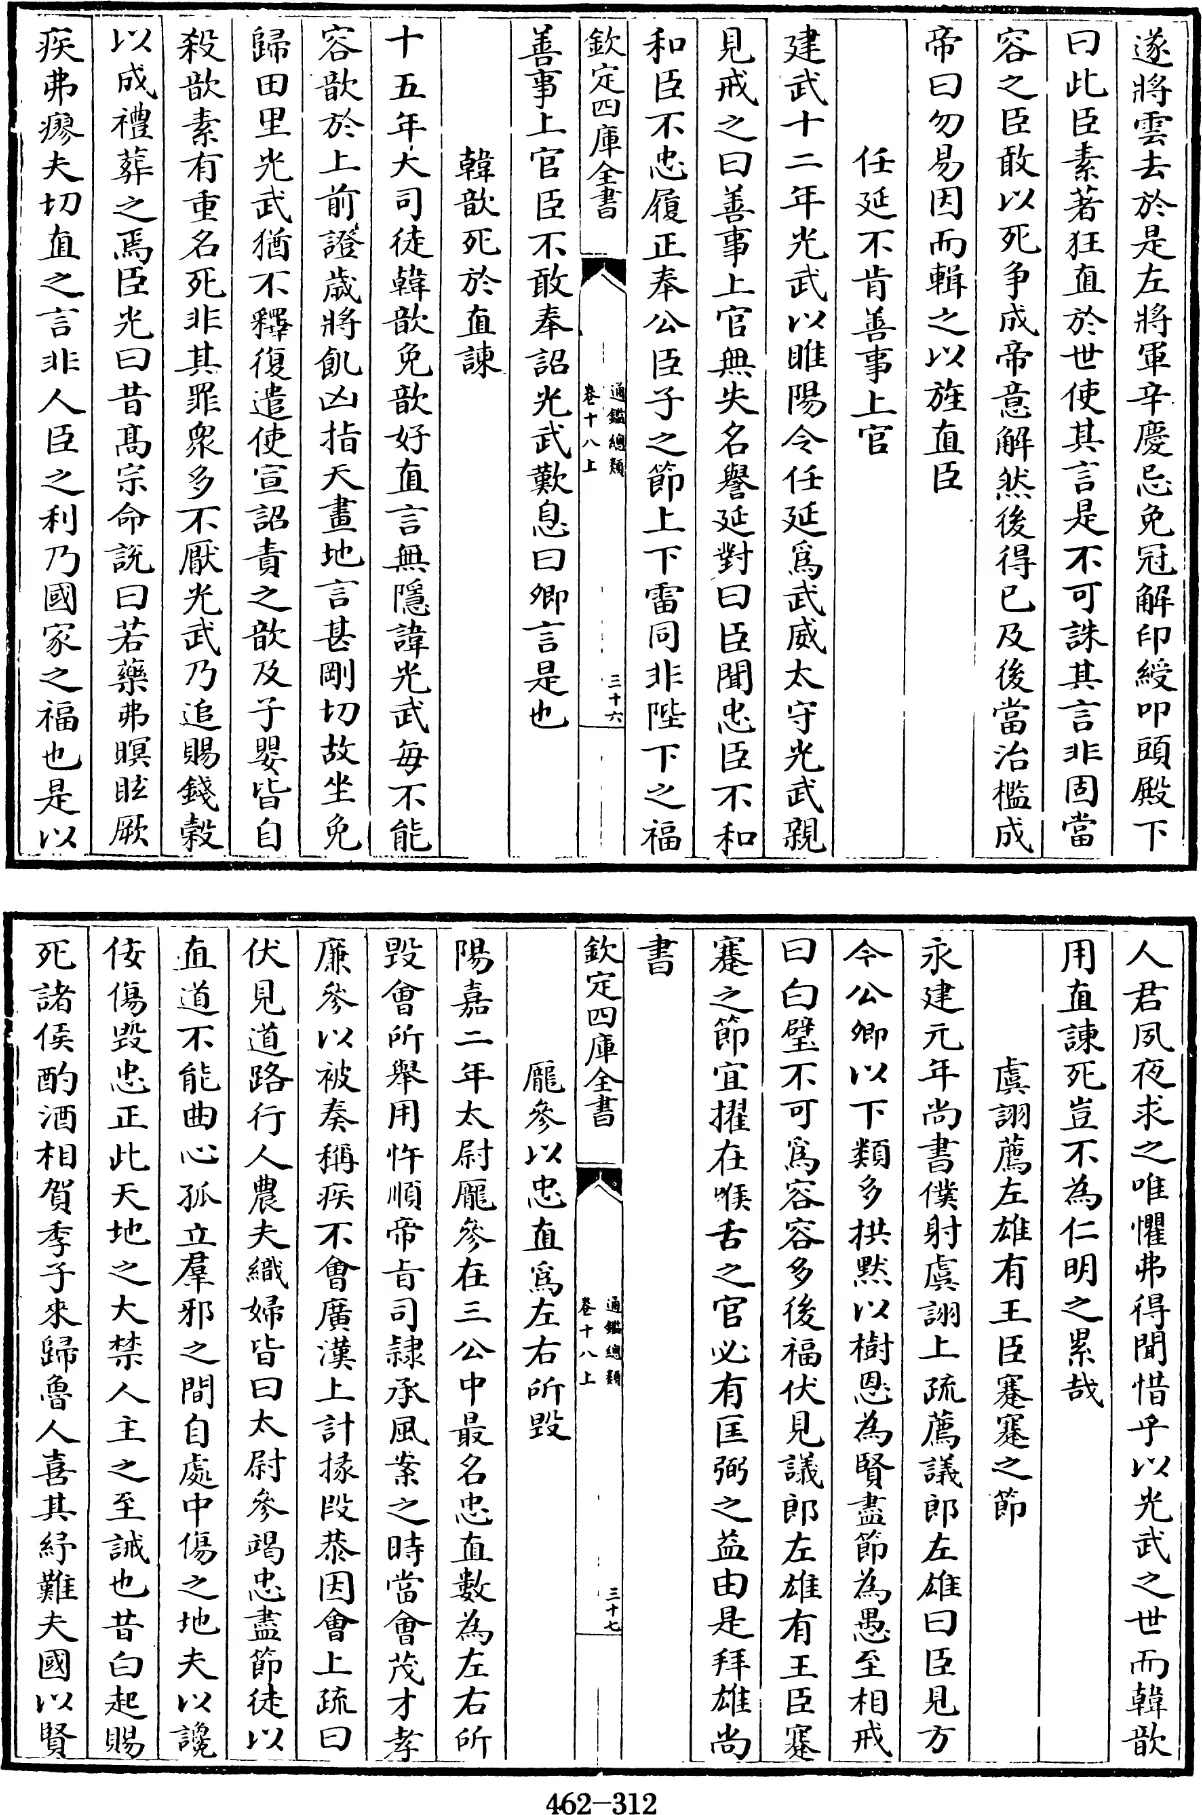 遂將雲去於是左將軍辛慶忌免冠解印綬叩頭殿下
曰此臣素著狂直於世使其言是不可誅其言非固當
容之臣敢以死争成帝意解然後得已及後當治檻成
帝曰勿易因而輯之以旌直臣
任延不肯善事上官
建武十二年光武以睢陽令任延爲武威太守光武親
見戒之曰善事上官無失名譽延對曰臣聞忠臣不和
和臣不忠履正奉公臣子之節上下雷同非陛下之福
欽定四庫全書
通鑑總類
卷十八上
三十六
善事上官臣不敢奉詔光武歎息曰卿言是也
韓歆死於直諫
十五年大司徒韓歆免歆好直言無隱諱光武毎不能
容歆於上前證歲將飢凶指天畫地言甚剛切故坐免
歸田里光武猶不釋復遣使宣詔責之歆及子嬰皆自
殺歆素有重名死非其罪衆多不厭光武乃追賜錢榖
以成禮葬之焉臣光曰昔髙宗命説曰若藥弗瞑眩厥
疾弗瘳夫切直之言非人臣之利乃國家之福也是以
人君夙夜求之唯懼弗得聞惜乎以光武之世而韓歆
用直諫死豈不為仁明之累哉
虞詡薦左雄有王臣蹇蹇之節
永建元年尚書僕射虞詡上疏薦議郎左雄曰臣見方
今公卿以下類多拱默以樹恩為賢盡節為愚至相戒
曰白璧不可爲容容多後福伏見議郎左雄有王臣蹇
蹇之節宜擢在喉舌之官必有匡弼之益由是拜雄尚
書
欽定四庫全書
通鑑總類
卷十八上
三十七
龎參以忠直爲左右所毁
陽嘉二年太尉龎參在三公中最名忠直數為左右所
毁會所舉用忤順帝㫖司隸承風案之時當會茂才孝
廉參以被奏稱疾不會廣漢上計掾段恭因會上疏曰
伏見道路行人農夫織婦皆曰太尉參竭忠盡節徒以
直道不能曲心孤立羣邪之間自處中傷之地夫以讒
佞傷毁忠正此天地之大禁人主之至誡也昔白起賜
死諸侯酌酒相賀季子來歸魯人喜其紓難夫國以賢
462-312